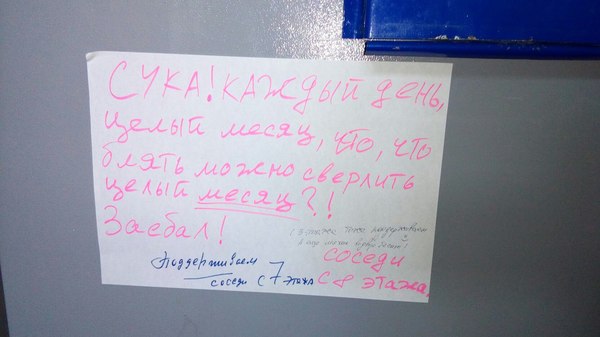 СУКА! КАЖДЫЙ ДЕНЬ,
целый месяц, что, что
блять можно сверлить
целый месяц?!
Заебал!
с 3 этажа тоже поддерживаем
соседи
с 8 этажа.
Поддерживаем
соседи с 7 этажа